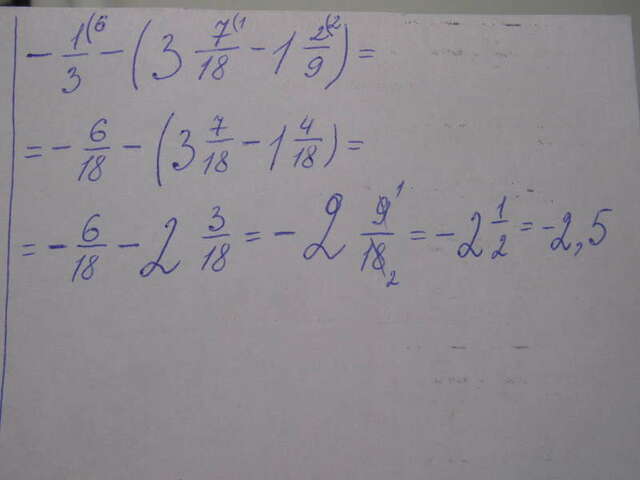 - 1/3 (6 - (3 7/18 (1 - 1 2/9 (2) =
= - 6/18 - (3 7/18 - 1 4/18) =
= - 6/18 - 2 3/18 = - 2 9/18 1 2 = - 2 1/2 = -2,5